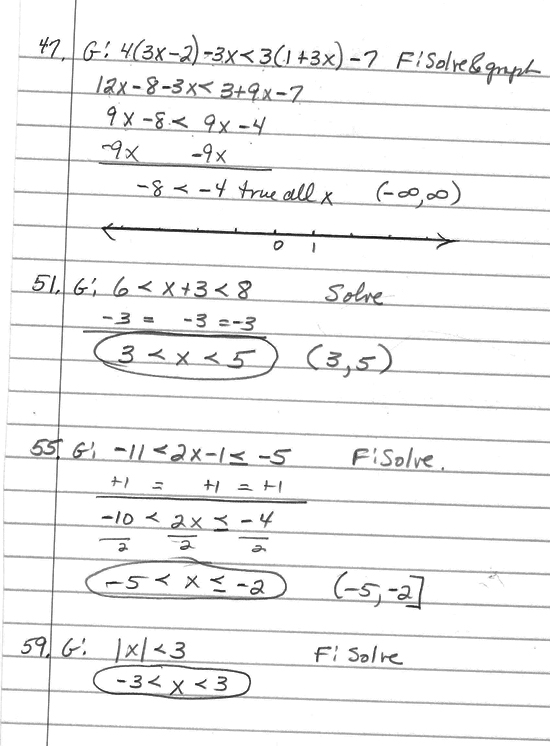 47. G: 4(3x-2)-3x<3(1+3x)-7 F: Solve & graph
12x-8-3x< 3+9x-7
9x-8< 9x-4
-9x -9x
-8 < -4 true all x (-∞,∞)
0 1
51. G: 6 < x+3 < 8 Solve
-3 = -3 = -3
3 < x < 5 (3,5)
55. G: -11 < 2x-1 ≤ -5 F: Solve.
+1 = +1 = +1
-10 < 2x ≤ -4
2 2 2
-5 < x ≤ -2 (-5,-2]
59. G: |x| < 3 F: Solve
-3 < x < 3